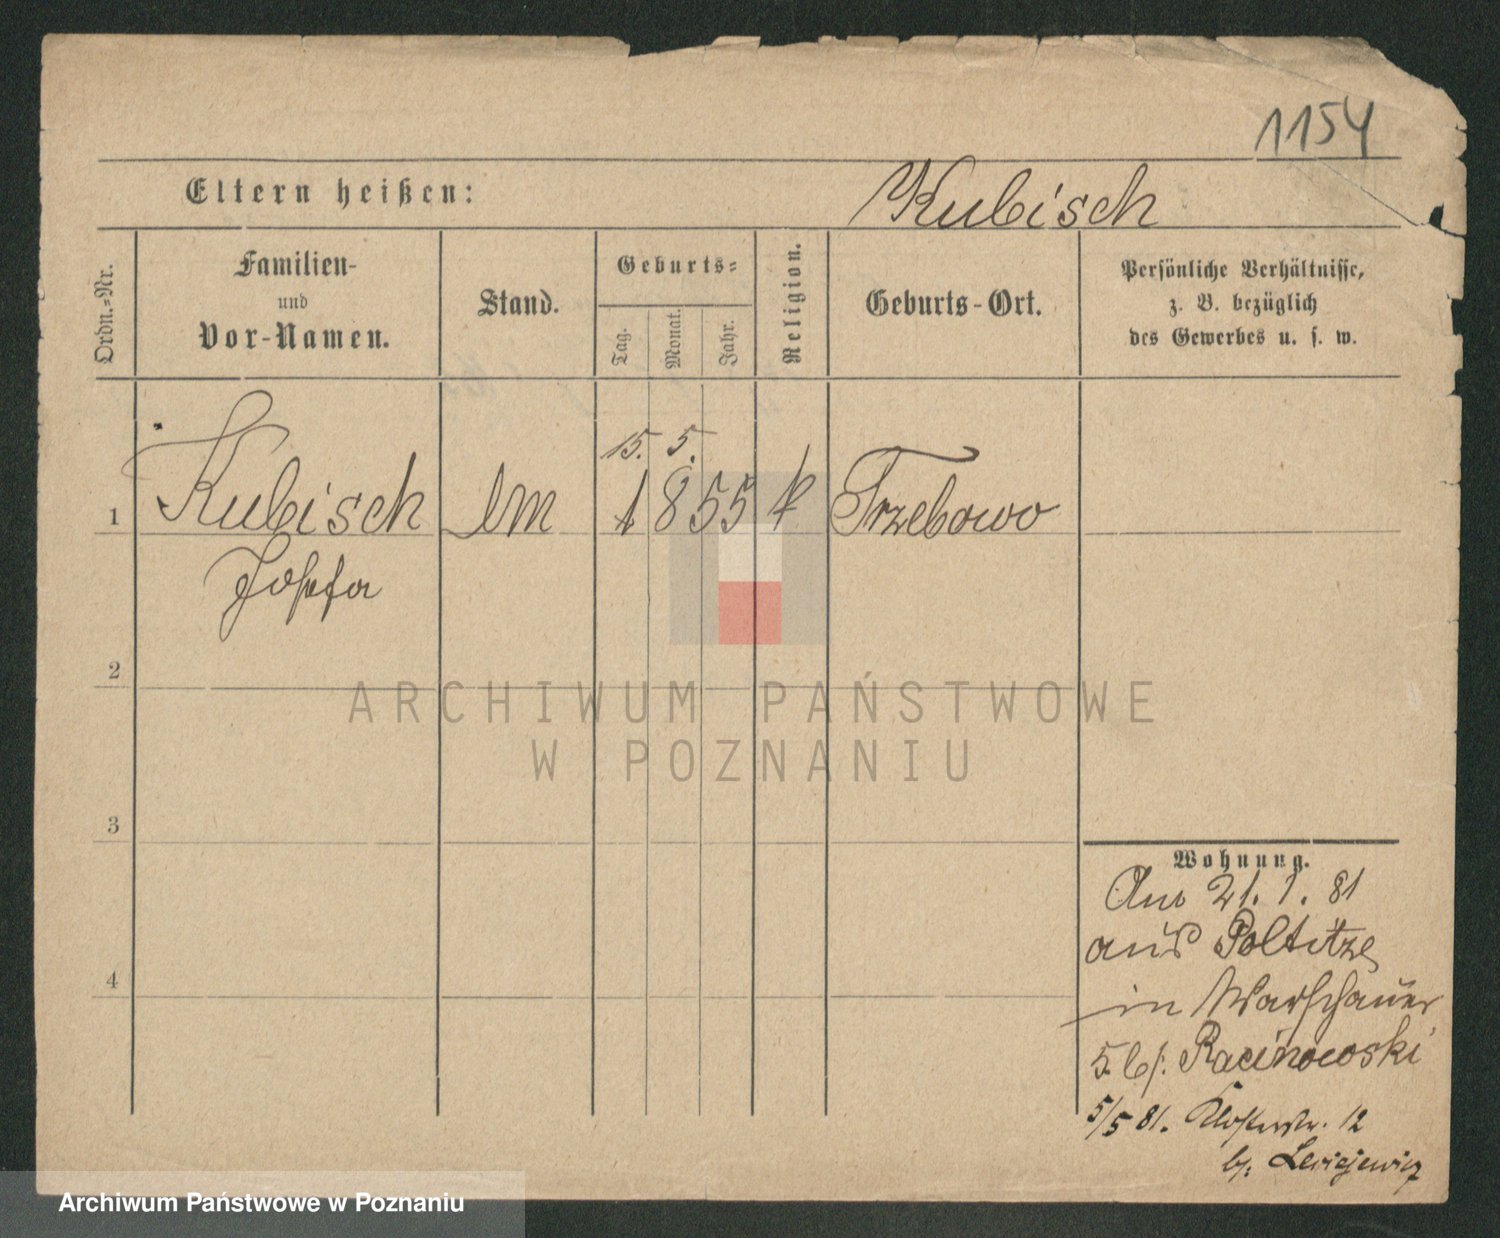 1154
Eltern heißen:
Kubisch
Ordn.-Nr.
Familien-
und
Vor-Namen.
Stand.
Geburts-
Tag.
Monat.
Jahr.
Religion.
Geburts-Ort.
Persönliche Verhältnisse,
z. B. bezüglich
des Gewerbes u. s. w.
15. 5.
1 Kubisch 1855 k Trzebowo
Josefa
2
3
4
Wohnung.
21. 1. 81
aus
in Warschauer
5. b/. Racinowski
5/5 81. Klosterstr. 12
b/:
ARCHIWUM PAŃSTWOWE
W POZNANIU
Archiwum Państwowe w Poznaniu